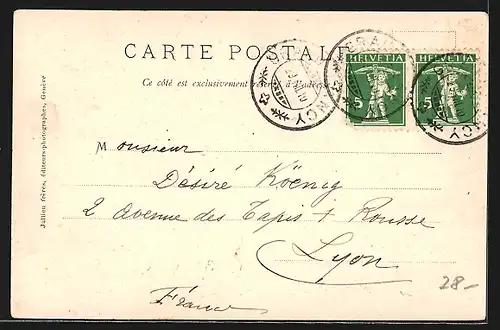 CARTE POSTALE
Ce côté est exclusivement réservé à l'adresse
HELVETIA HELVETIA
5 5
Monsieur
Désiré Köenig
2 avenue des Tapis + Rousse
Lyon
France
28-
Jullien frères, éditeurs-photographes, Genève